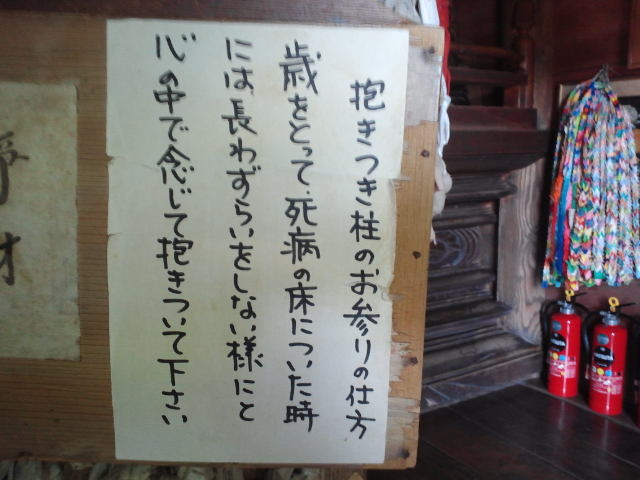 抱きつき柱のお参りの仕方
歳をとって、死病の床についた時
には、長わずらいをしない様にと
心の中で念じて抱きついて下さい
浄財